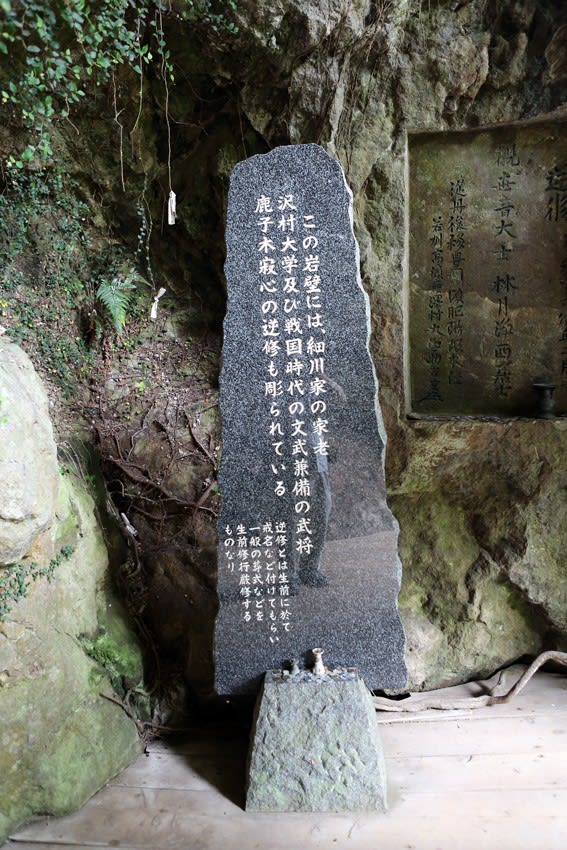 この岩壁には、細川家の家老
沢村大学及び戦国時代の文武兼備の武将
鹿子木寂心の逆修も彫られている
逆修とは生前に於て
戒名など付けてもらい
一般の葬式などを
生前修行厳修する
ものなり
逆修
觀世音大士 林月